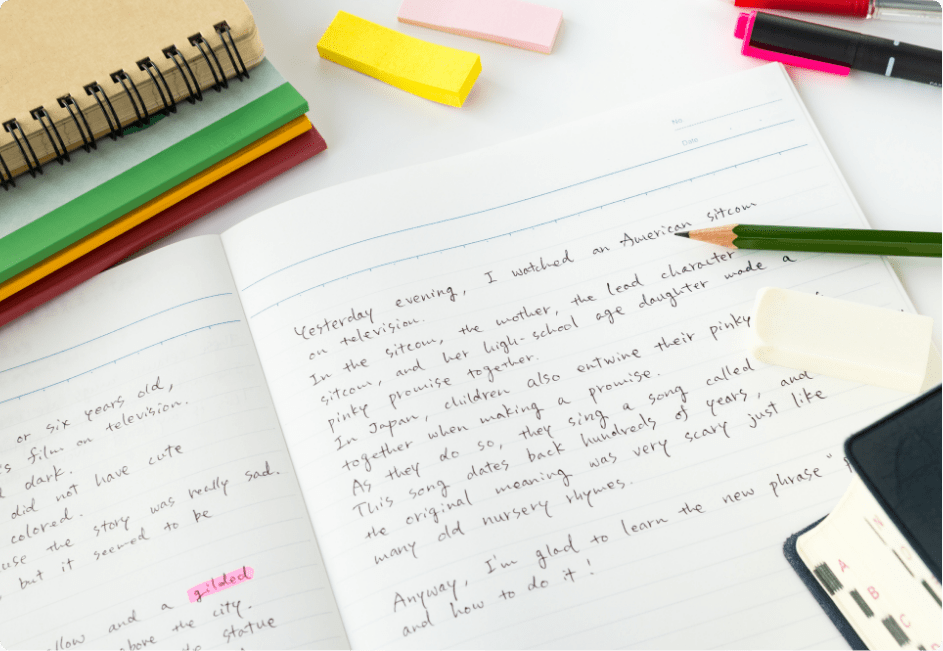 or six years old,
s film on television.
dark.
did not have cute
colored.
use the story was really sad.
but it seemed to be
llow and a gilded
above the city.
to statue
No.
Date
Yesterday evening, I watched an American sitcom
on television.
In the sitcom, the mother, the lead character
sitcom, and her high-school age daughter made a
pinky promise together.
In Japan, children also entwine their pinky
together when making a promise.
As they do so, they sing a song called
This song dates back hundreds of years, and
the original meaning was very scary just like
many old nursery rhymes.
Anyway, I'm glad to learn the new phrase "
and how to do it!
A
B
C
D